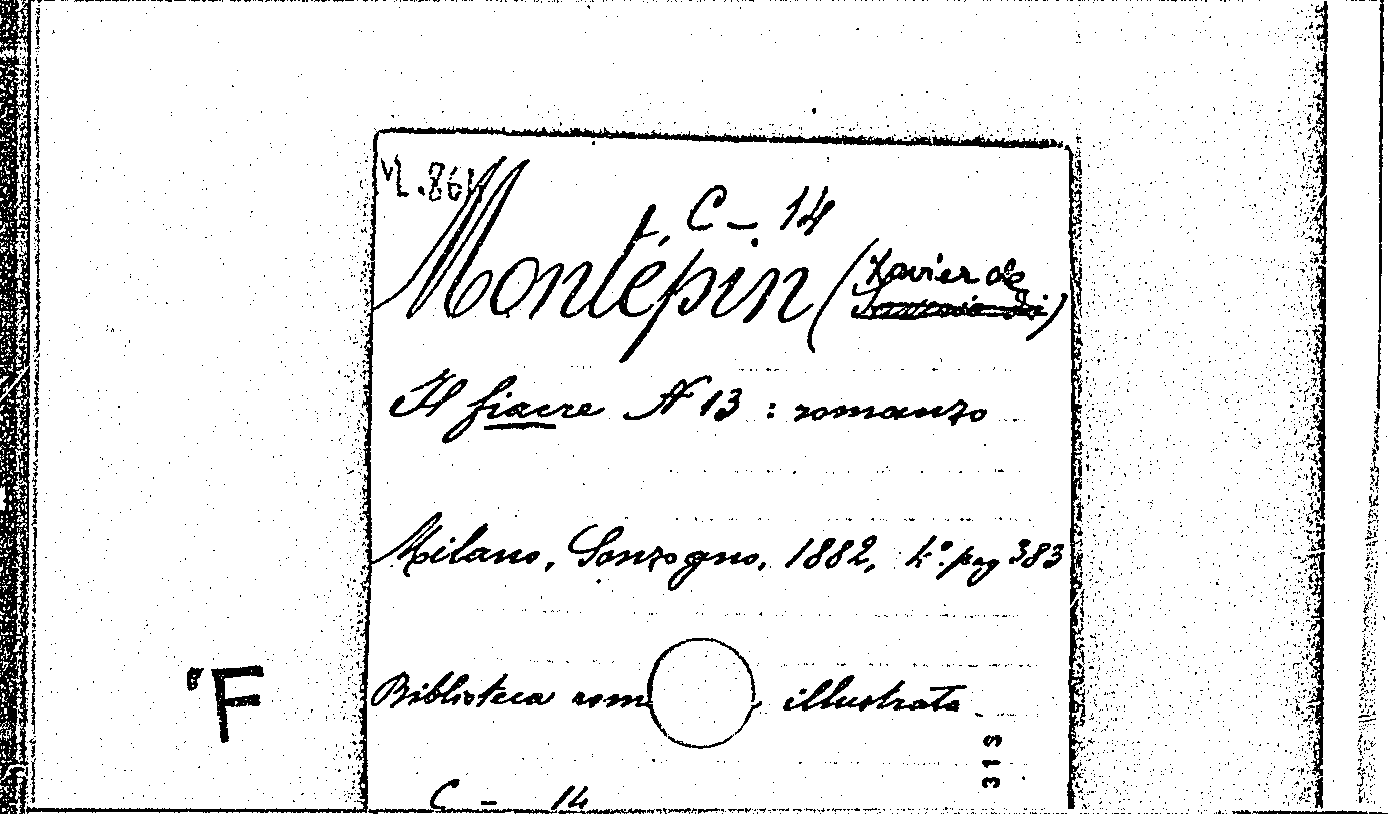 C - 14
Montépin (Xavier de)
Il fiacre N 13 : romanzo
Milano, Sonzogno, 1882, 4º. pag 383
Biblioteca rom illustrata
F
313
C - 14